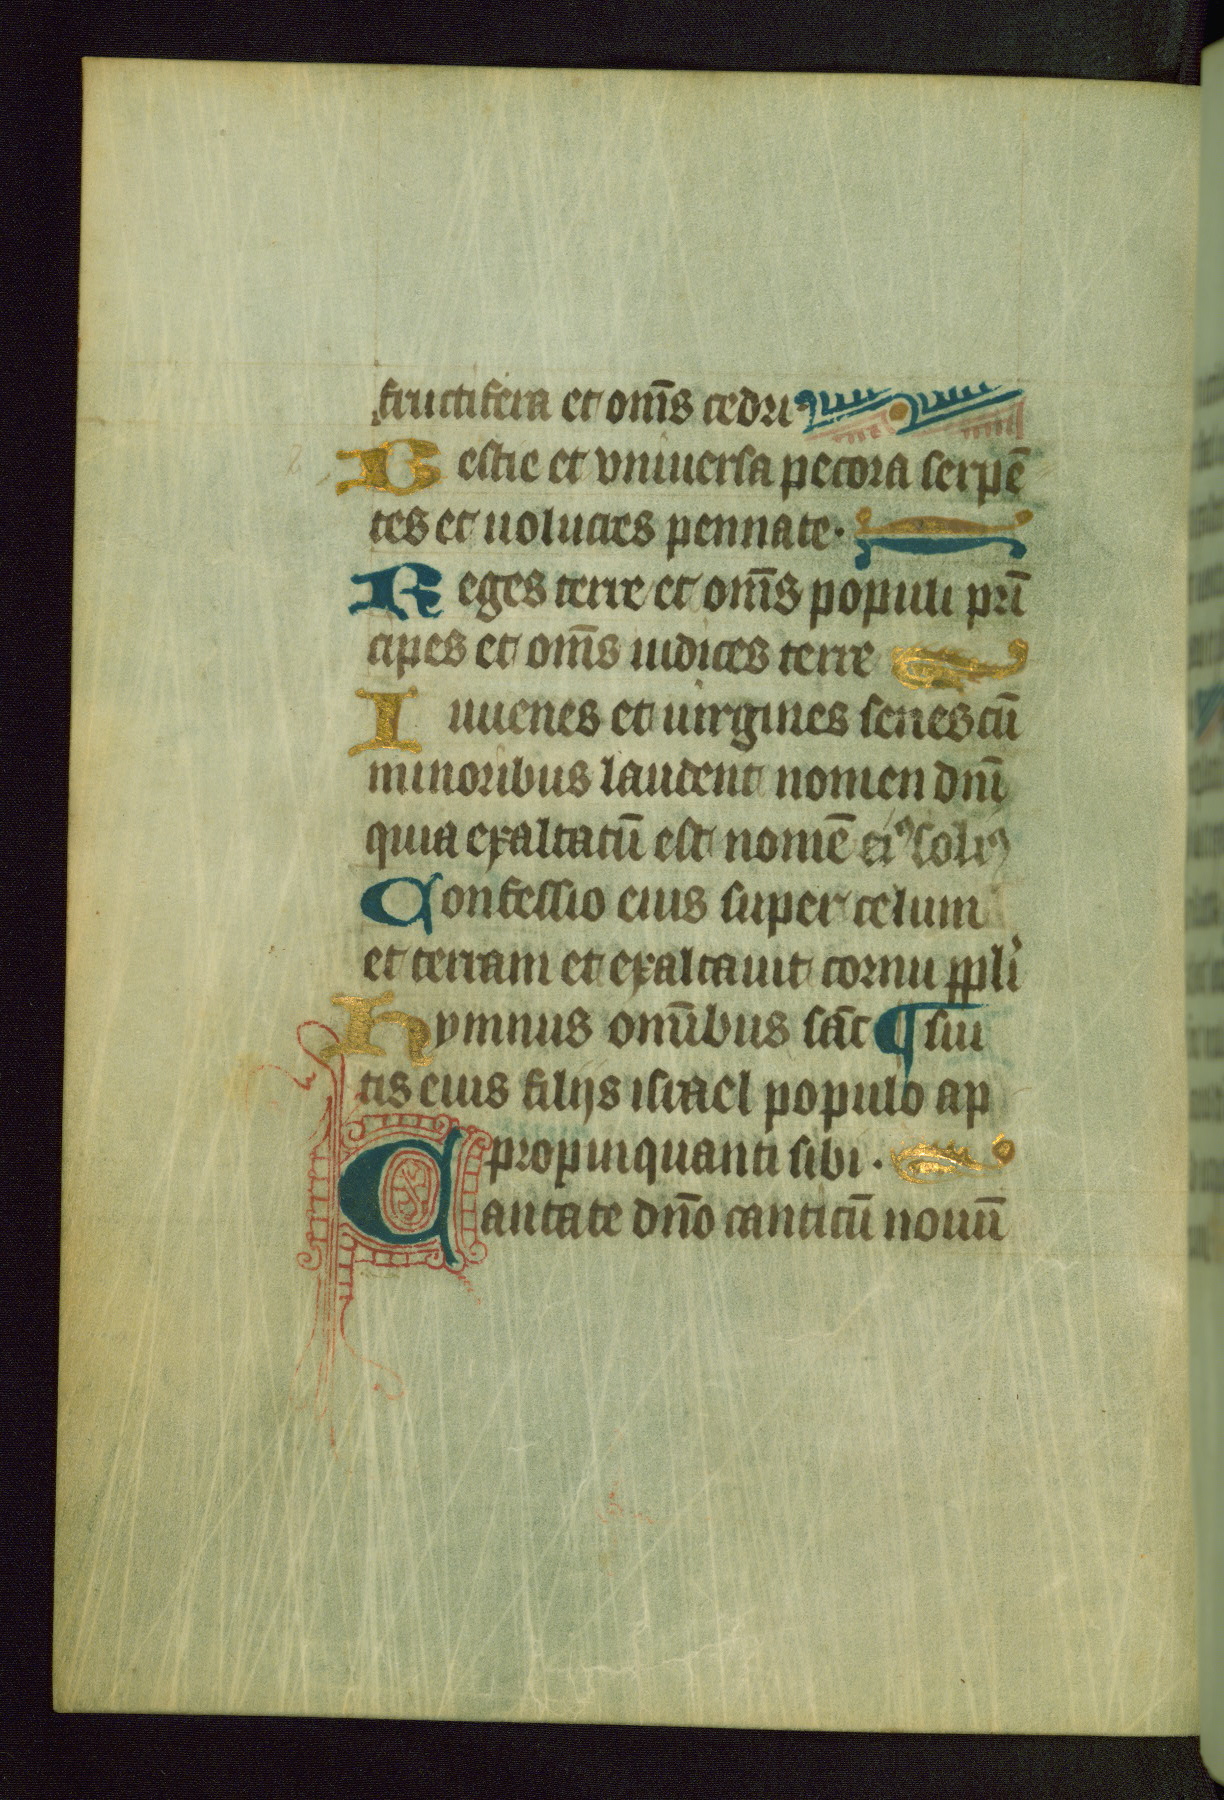 fructifera et om̄s cedri
Bestie et vniuersa pecora serpē
tes et uolucres pennate·
Reges terre et om̄s populi pri̅
cipes et om̄s iudices terre
Iuuenes et uirgines senes cū
minoribus laudent nomen dnī
quia exaltatū est nomē ei⁹ soli⁹
Confessio eius super celum
et terram et exaltauit cornu ppli
hymnus omībus sāc ¶ sui
tis eius filijs israel populo ap
propinquanti sibi·
Cantate dn̄o canticū nouū